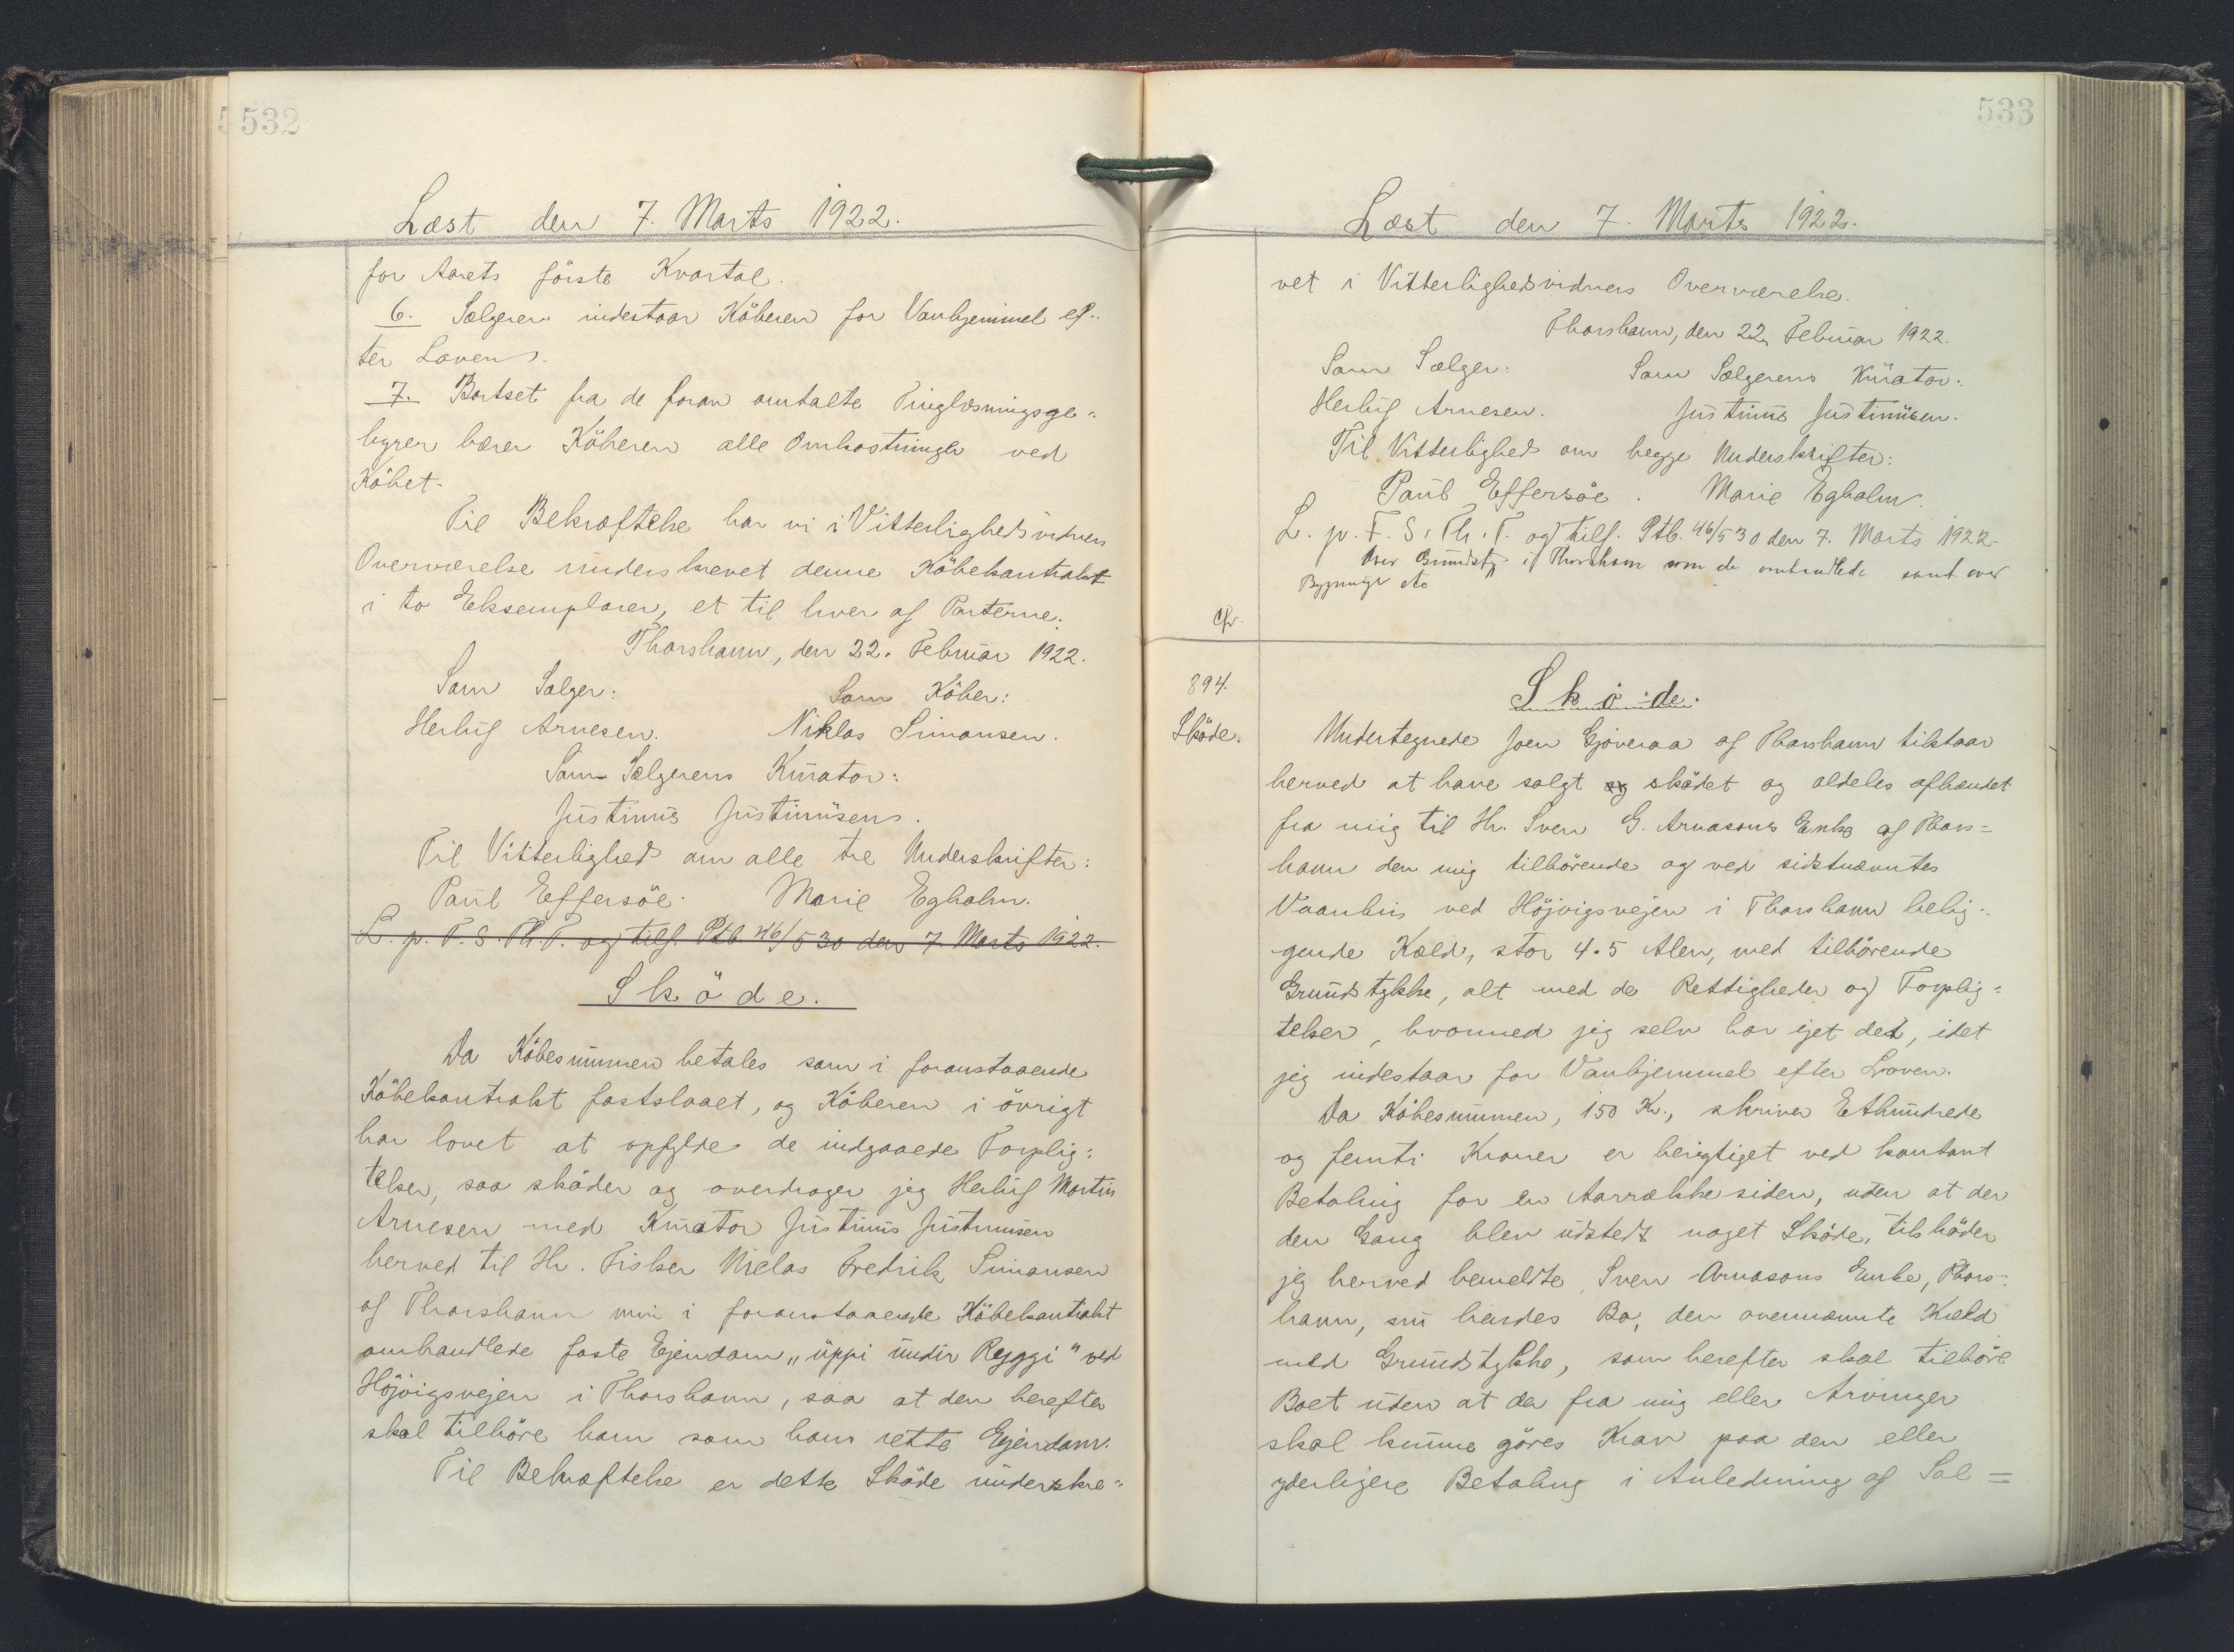 532
Læst den 7. Marts 1922.
for Aarets förste Kvartal.
6. Sælgeren indestaar Köberen for Vanhjemmel ef-
ter Loven.
7. Bortset fra de foran omtalte Tinglæsningsge-
byrer bærer Köberen alle Omkostninger ved
Köbet.
Til Bekræftelse har vi i Vitterlighedsvidners
Overværelse underskrevet denne Köbekontrakt
i to Eksemplarer, et til hver af Parterne.
Thorshavn, den 22. Februar 1922.
Som Sælger: Som Köber:
Herluf Arnesen. Niklas Simonsen.
Som Sælgerens Kurator:
Justinus Justinusen.
Til Vitterlighed om alle tre Underskrifter:
Paul Effersöe. Marie Egholm.
L. p. F. S. Th. T. og tilf. Ptb. 46/530 den 7. Marts 1922.
Sköde.
Da Köbesummen betales som i foranstaaende
Köbekontrakt fastslaaet, og Köberen i övrigt
har lovet at opfylde de indgaaede Forplig-
telser, saa sköder og overdrager jeg Herluf Martin
Arnesen med Kurator Justinus Justinusen
herved til Hr. Fisker Niclas Fredrik Simonsen
af Thorshavn min i foranstaaende Köbekontrakt
omhandlede faste Ejendom "uppi undir Ryggi" ved
Höjvigsvejen i Thorshavn, saa at den herefter
skal tilhöre ham som hans rette Ejendom.
Til Bekræftelse er dette Sköde underskre-
533
Læst den 7. Marts 1922.
vet i Vitterlighedsvidners Overværelse.
Thorshavn, den 22. Februar 1922.
Som Sælger: Som Sælgerens Kurator:
Herluf Arnesen. Justinus Justinusen.
Til Vitterlighed om begge Underskrifter:
Paul Effersöe. Marie Egholm.
L. p. F. S. Th. T. og tilf. Ptb. 46/530 den 7. Marts 1922.
Over Grundst. i Thorshavn som de omhandlede samt over
Bygninger etc
Cfr.
894.
Sköde.
Sköde.
Undertegnede Joen Gjoveraa af Thorshavn tilstaar
herved at have solgt og skødet og aldeles afhændet
fra mig til Hr. Sven G. Arnasons Enke af Thors-
havn den mig tilhörende og ved sidstnævntes
Vaanhus ved Höjvigsvejen i Thorshavn belig-
gende Kæld, stor 4.5 Alen, med tilhörende
Grundstykke, alt med de Rettigheder og Forplig-
telser, hvormed jeg selv har ejet det, idet
jeg indestaar for Vanhjemmel efter Loven.
Da Köbesummen, 150 Kr., skriver Ethundrede
og femti Kroner er berigtiget ved kontant
Betaling for en Aarrække siden, uden at der
den Gang blev udstedt noget Sköde, tilsköder
jeg herved bemeldte Sven Arnasons Enke, Thors-
havn, nu hendes Bo, den ovennævnte Kæld
med Grundstykke, som herefter skal tilhöre
Boet uden at der fra mig eller Arvinger
skal kunne göres Krav paa den eller
yderligere Betaling i Anledning af Sal-